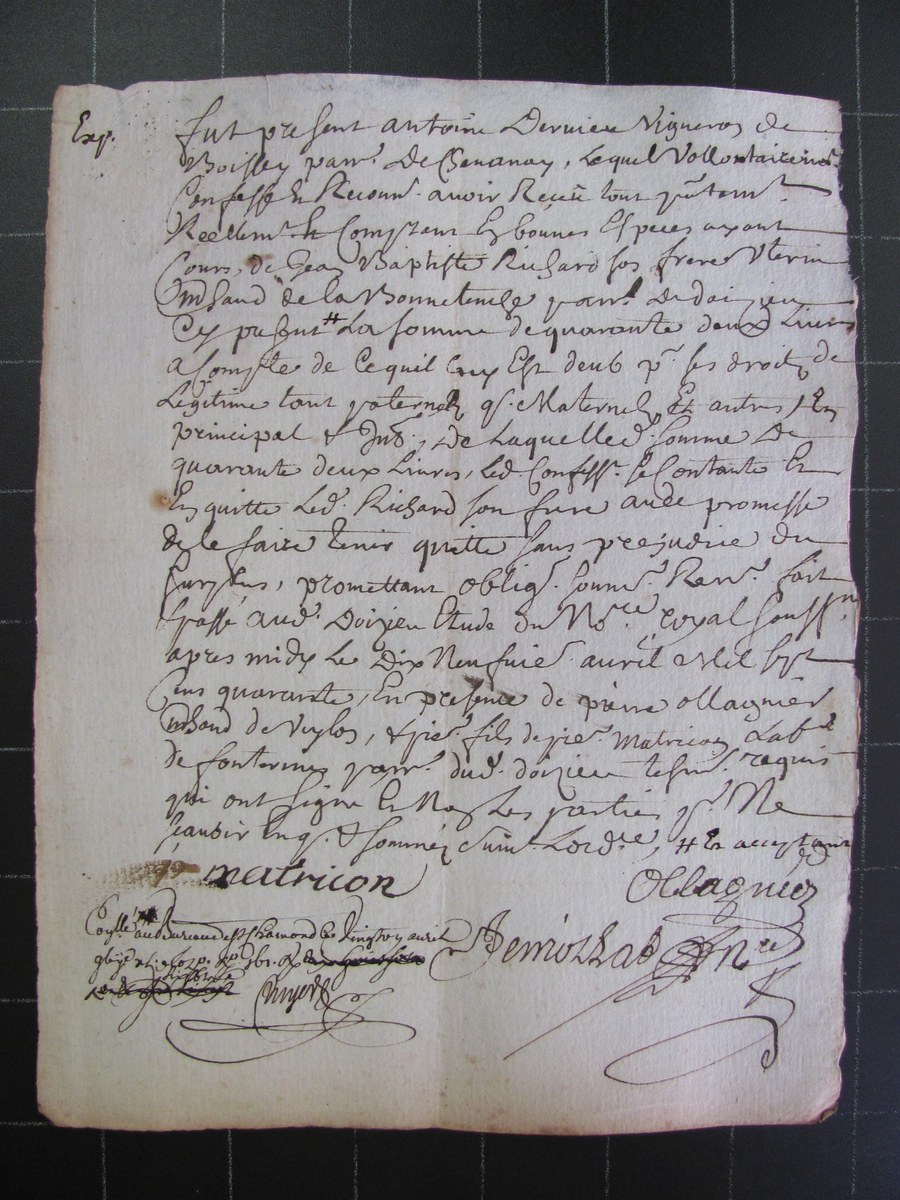 Exp.
fut present antoine Dervieu Vigneron de
Boissey parr.e De Chenanay, Lequel Vollontairem.t
Confesse En Reconn.t avoir Reçeu tout p.ntem.t
Reellem.t Et Comptant En bonnes Especes ayant
Cours, de Jean Baptiste Richard son frere Vterin
m.hand de la parr.e De doizieu
Cy present # La somme de quarante deux Livres
a Compte de Ce quil Luy Est deub p.r ses droits de
Legitime tant paternels q. Maternels, Et autres, En
principal & Int.s, De Laquelle d. somme De
quarante deux Livres, Led. Confess.t se Contante Et
En quitte Led. Richard son frere avec promesse
de le faire tenir quitte sans prejudice du
surplus, promettant oblig.t soum.t Ren.t fait
& passé aud. Doizieu Etude du No.re royal souss.né
apres midy Le Dix Neufvie. avril Mil sept
Cens quarante, En presence de pierre ollagnier
m.hand de & pie. fils de pie. Matricon Lab.r
de parr.e dud. doizieu tesm. requis
qui ont signé Et Non Les parties p.r Ne
sçavoir Enq. & sommés suiv. Lord.ce, # En acceptant
matricon
Ollagnier
au Bureau de St Chamond Le vingt avril
N.re